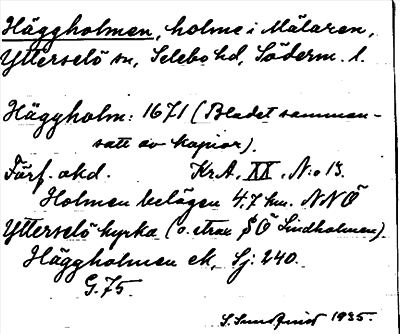 Häggholmen, holme i Mälaren,
Ytterselö sn, Selebo hd, Söderm. l.
Häggholm: 1671 (Bladet samman-
satt av kapior).
Färf. okd. Kr.A. XX. N:o 13.
Holmen belägen 4.7 km. NNÖ
Ytterselö kyrka (o. strax SÖ Lindholmen).
Häggholmen ek, Sj: 240.
G.75.
S. Sundquist 1935.